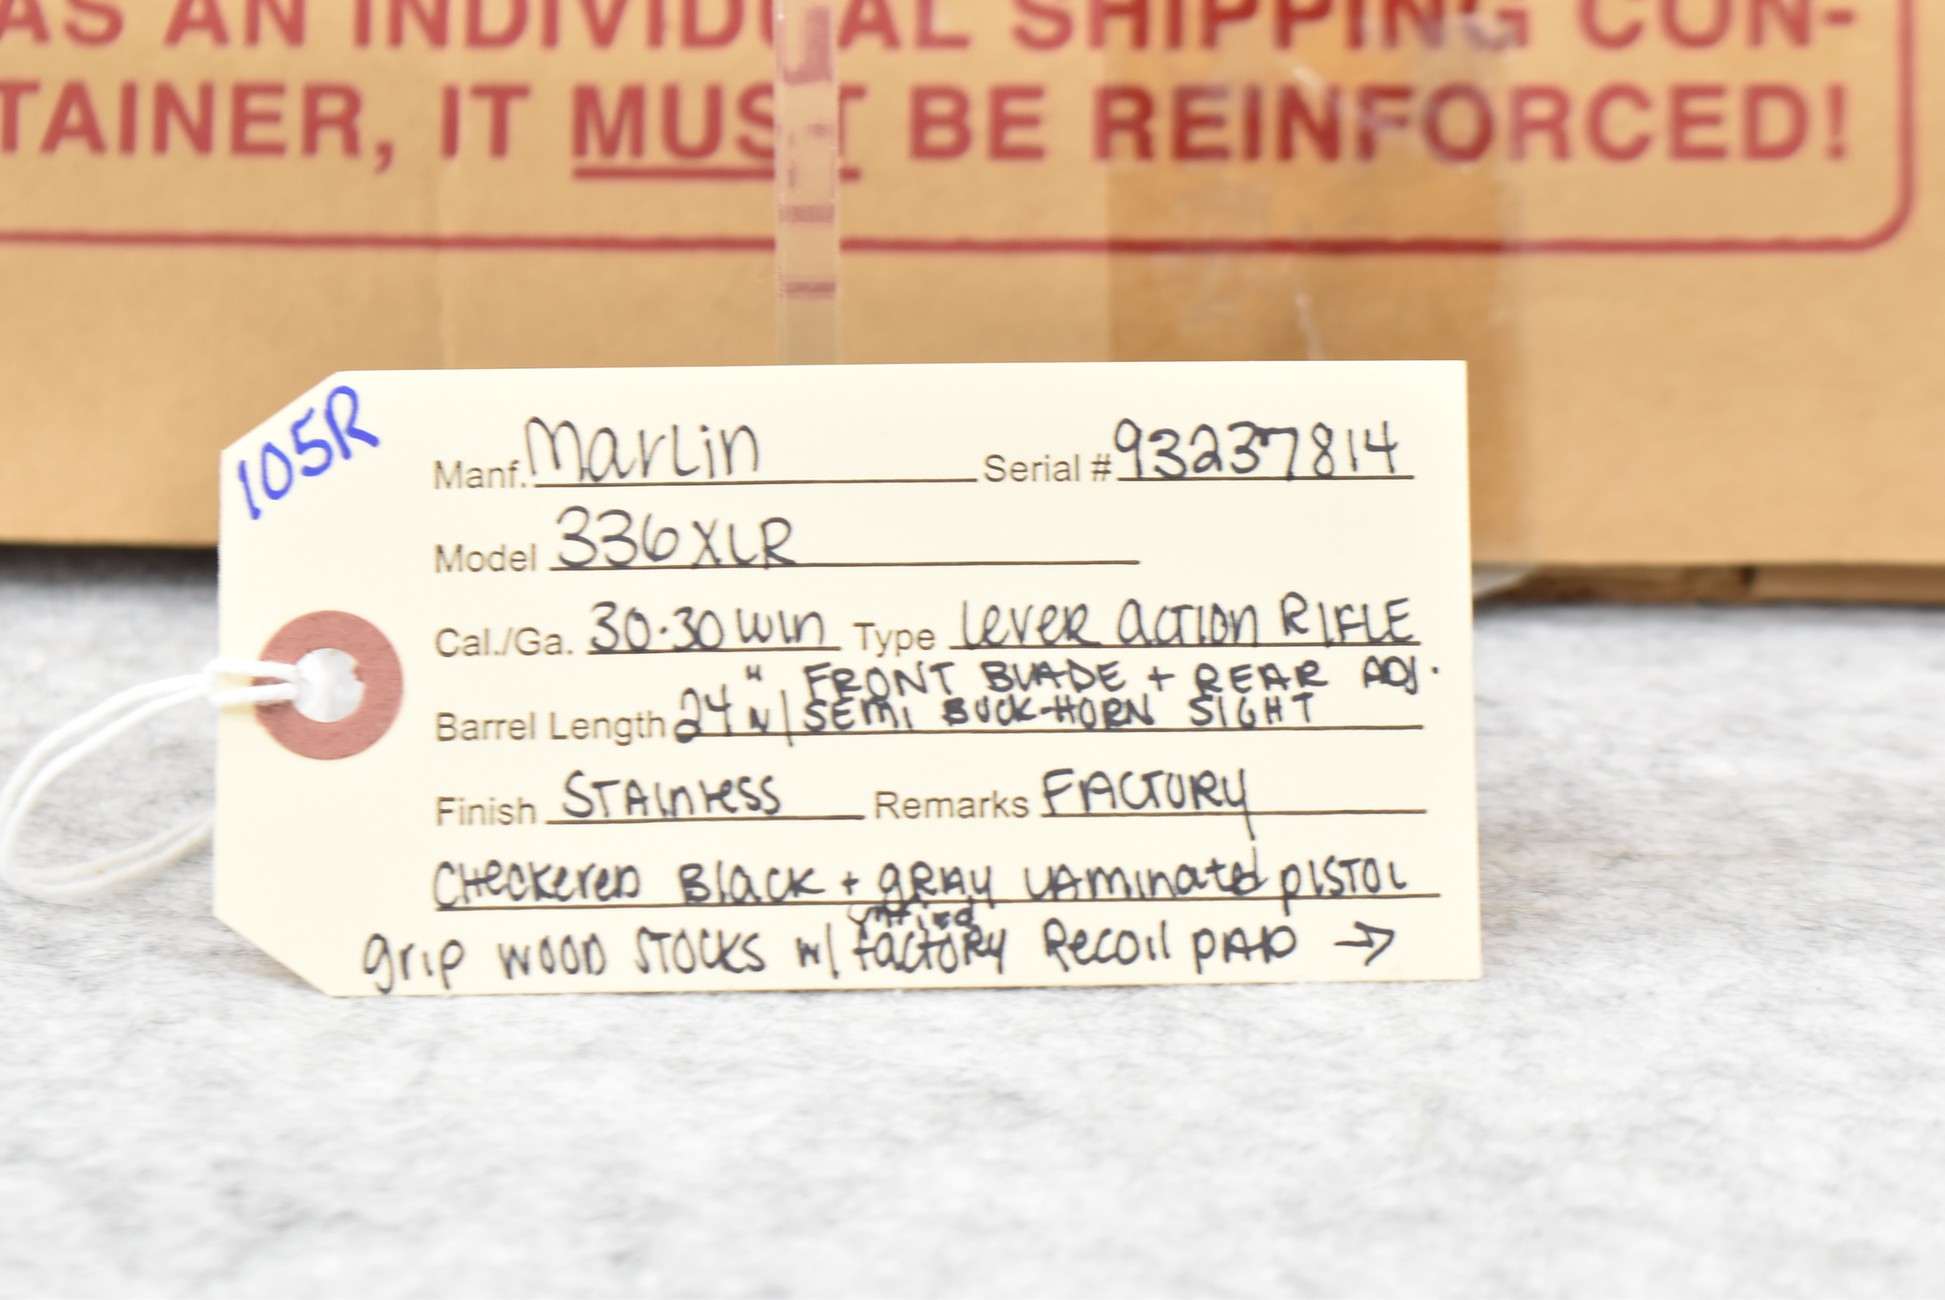 AS AN INDIVIDUAL SHIPPING CON-
TAINER, IT MUST BE REINFORCED!
105R
Manf. Marlin Serial # 93237814
Model 336XLR
Cal./Ga. 30-30 Win Type Lever Action RIFLE
Barrel Length 24" w/ FRONT BLADE + REAR ADJ.
SEMI BUCK-HORN SIGHT
Finish STAINLESS Remarks FACTORY
CHECKERED BLACK + GRAY LAMINATED PISTOL
grip WOOD STOCKS w/ factory Recoil PAD →